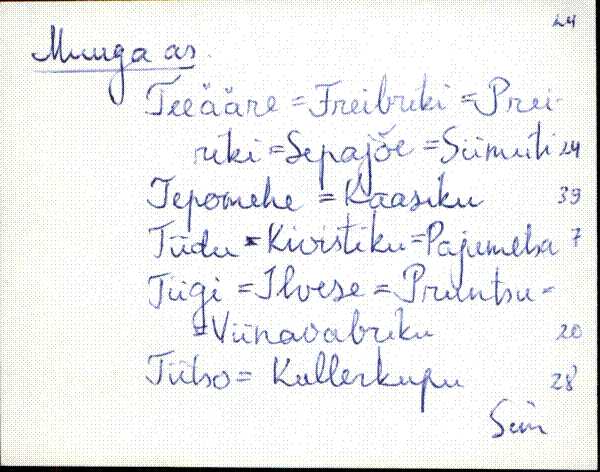 24
Muuga as.
Teeääre = Freibriki = Prei-
riki = Sepajõe = Siimuti 24
Tepomehe = Kaasiku 39
Tiidu = Kivistiku = Pajumetsa 7
Tiigi = Ilvese = Pruntsu =
= Viinavabriku 20
Tiitso = Kullerkupu 28